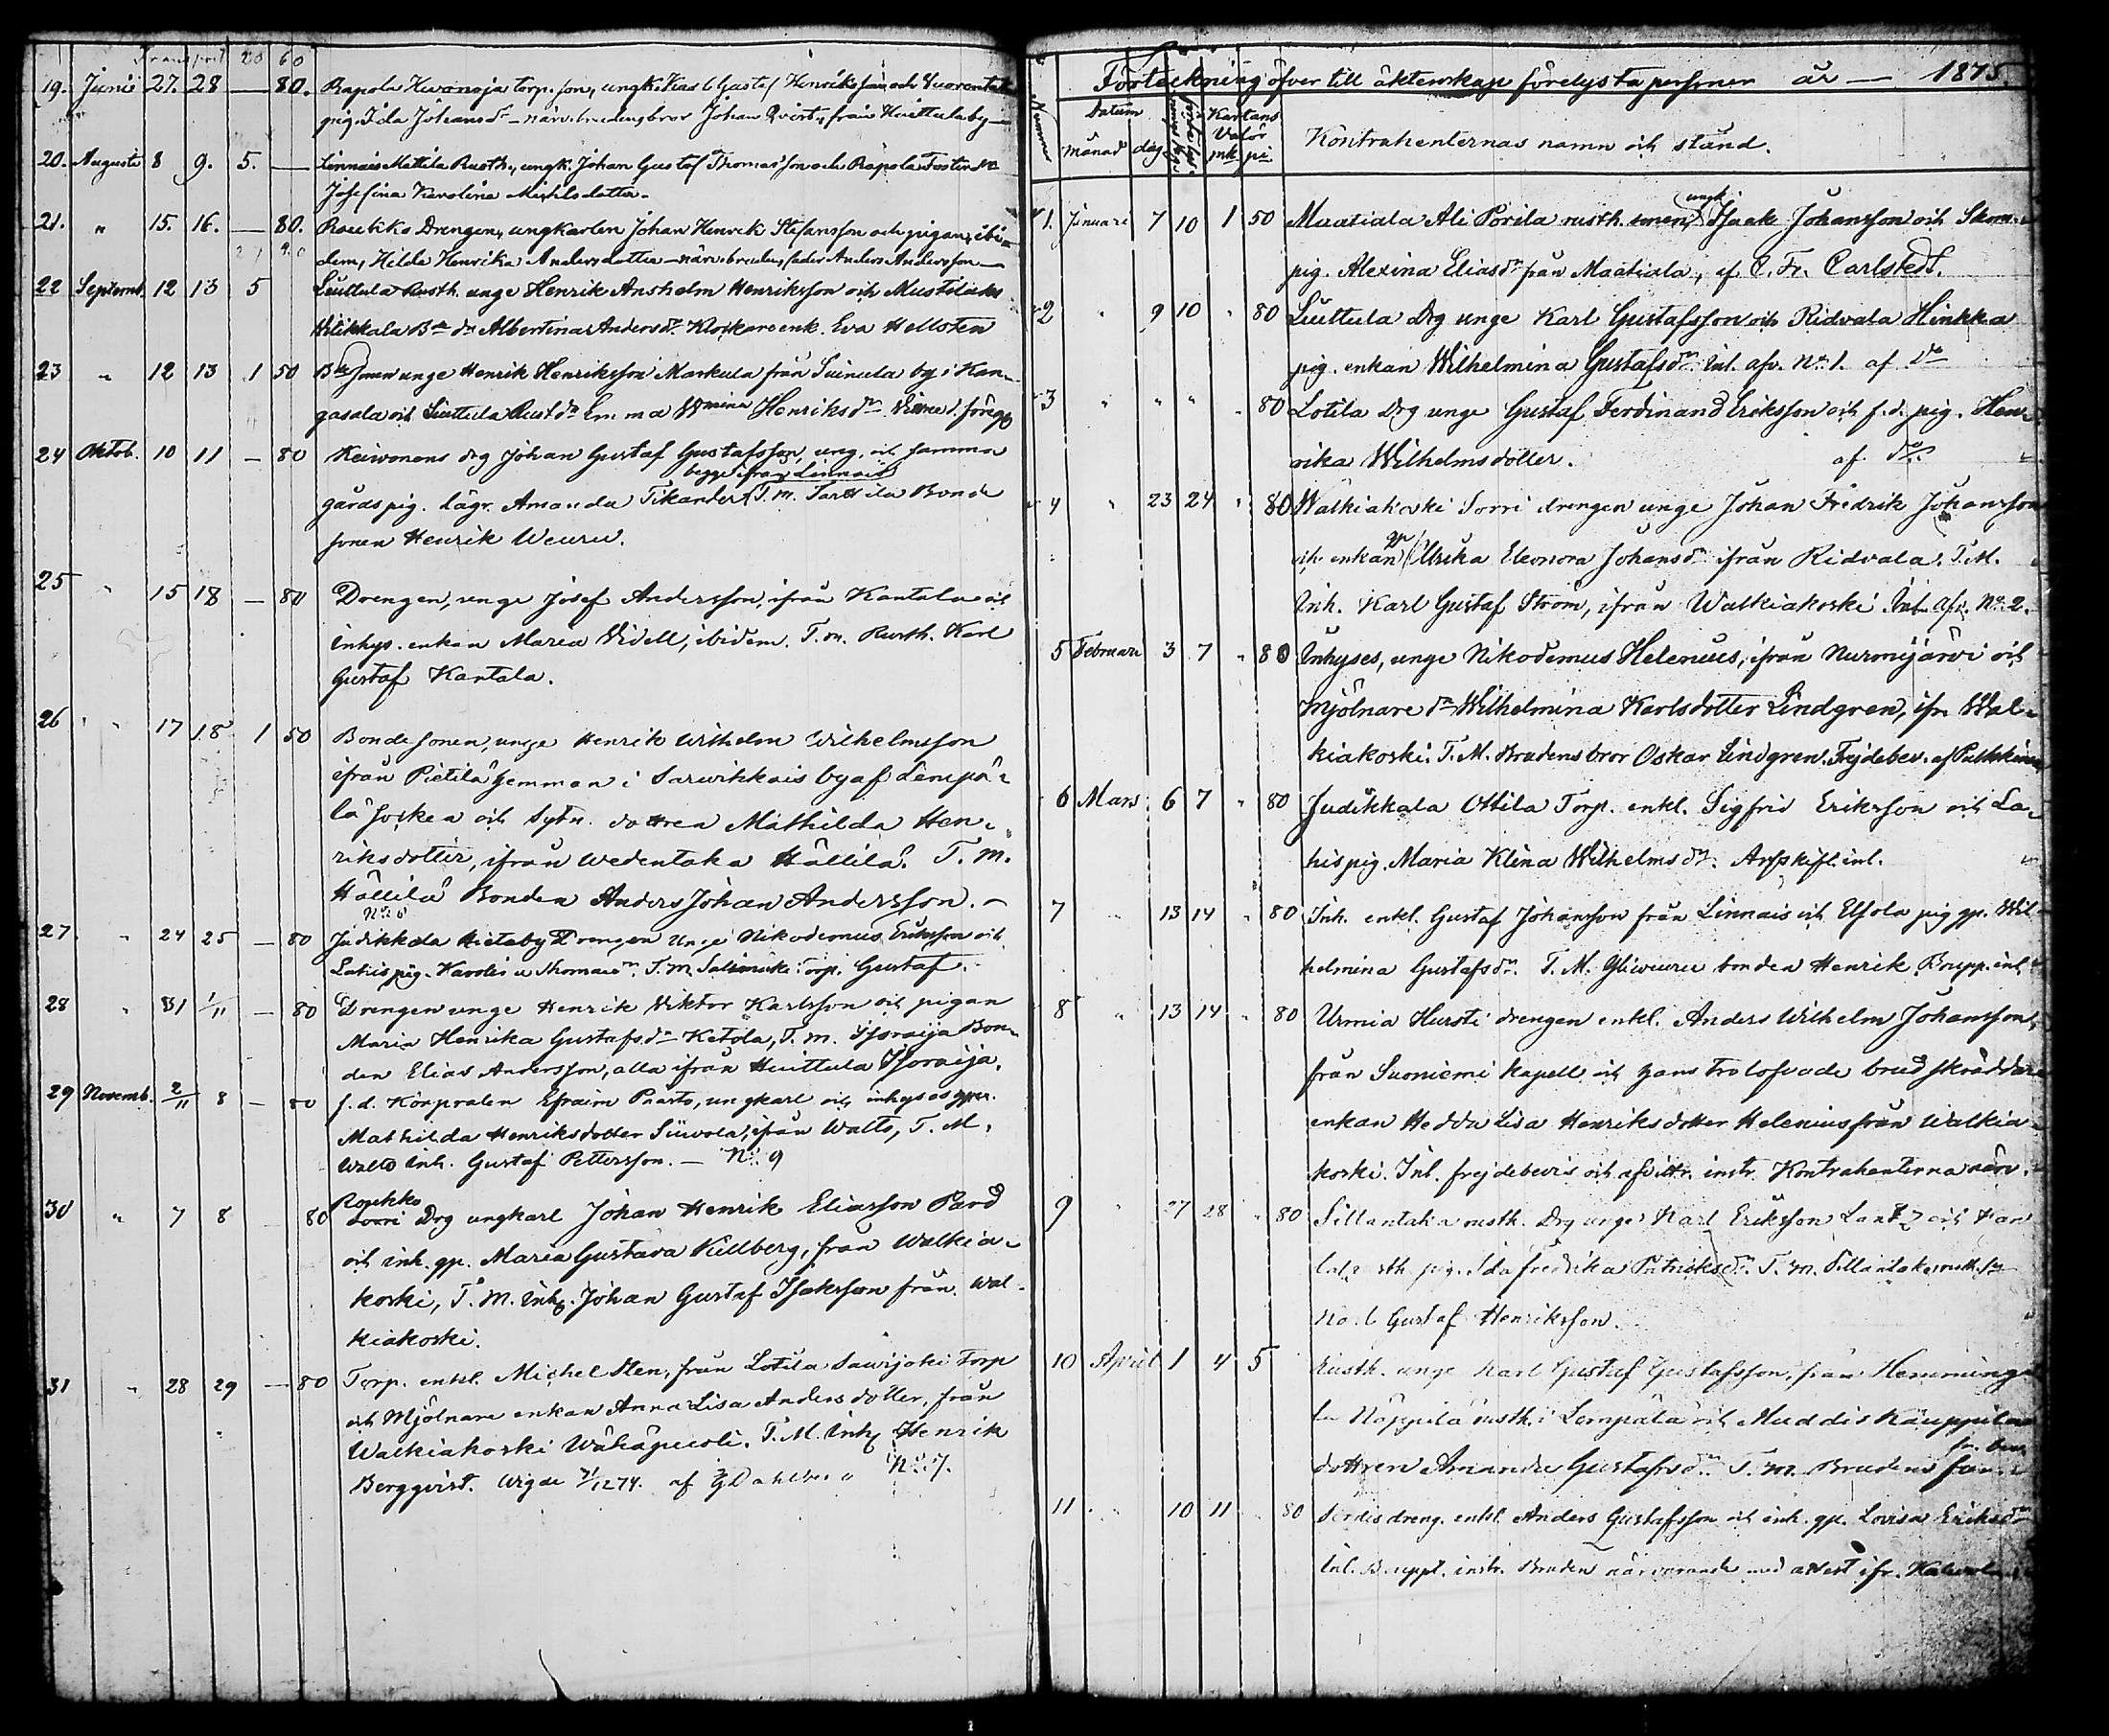 Transport 20 60
19. Junii 27. 28 — 80. Rapola torp. son, ungk. Gustaf Henriksson och Vuorentaka
pig. Ida Johansdr — närv. brudens bror Johan Qvist, från Huittula by —
20. Augusti 8 9. 5. — Linnais Mattila Rusth., ungk. Johan Gustaf Thomasson och Rapola
Josefina Karolina Michelsdotter.
21. " 15. 16. — 80. Roukko Drengen, ungkarlen Johan Henrik Stefansson och pigan, ibi-
dem, Hilda Henrika Andersdotter — närv. brudens fader Anders Andersson —
22 Septemb. 12 13 5 Liuttula Rusth. unge Henrik Anshelm Henriksson och
Wilikkala Bde dr Albertina Andersdr. Klockareenk. Eva Hellsten
23 " 12 13 1 50 Bde sonen unge Henrik Henriksson Markula från Suinula by i Kan-
gasala och Liuttula Rust dr Emma Wmina Henriksdr.
24 Oktob. 10 11 — 80 Keiwonens drg Johan Gustaf Gustafsson, ung. och samma
begge ifrån Linnais
gårds pig. lägr. Amanda Tikander, T. M. Bonde
sonen Henrik Weuru.
25 " 15 18 — 80 Drengen, unge Josef Andersson, ifrån Kantala och
inhys. enkan Maria Videll, ibidem. T. m. Rusth. Karl
Gustaf Kantala.
26 " " 17 18 1 50 Bondesonen, unge Henrik Wilhelm Wilhelmsson
ifrån Pietilä hemman i Sarwikkais by af Lempä-
lä socken och Sytn. dottren Mathilda Hen-
riksdotter, ifrån Wedentaka Hällilä. T. M.
Hällilä Bonden Anders Johan Andersson. —
No 6
27. " 24 25 — 80 Judikkala Rietaby Drengen Unge Nikodemus Eriksson och
Lahis pig. Karolina Thomasdr. T. m. Torp. Gustaf.
28 " 31 1/11 — 80 Drengen unge Henrik Viktor Karlsson och pigan
Maria Henrika Gustafsdr Ketola, T. m. Isoraija Bon-
den Elias Andersson, alla ifrån Huittula Isoraija.
29 Novemb. 2/11 8 — 80 f. d. Korpralen Efraim Paarto, ungkarl och inhyses
Mathilda Henriksdotter Siivola, ifrån Walto, T. M.
Walto Inh. Gustaf Pettersson. — No. 9
30 " 7 8 80 Roukko
Sorri Drg ungkarl Johan Henrik Eliasson Pard
och inh. qp. Maria Gustava Kullberg, från Walkia-
koski, T. M. Inh. Johan Gustaf Isaksson från Wal-
kiakoski.
31 " 28 29 — 80 Torp. enkl. Michel Sten, från Lotila Sawijoki Torp
och Mjölnare enkan Anna Lisa Andersdotter, från
Walkiakoski T. M. Inh Henrik
Bergqvist. Wigde af G Dahlberg No. 7.
Förteckning öfver till äktenskap förelysta personer år — 1875.
Nummer Datum Kartans
Valör
månad dag mk pi Kontrahenternas namn och stånd.
1. Januari 7 10 1 50 Maatiala Ali Porila rusth. sonen, ungk. Isaak Johansson och
pig. Alexina Eliasdr från Maatiala, af C. Fr. Carlstedt.
2 " 9 10 " 80 Liuttula Drg unge Karl Gustafsson och Ridvala Hinkka
pig. enkan Wilhelmina Gustafsdr. Inl. afv. No 1. af Do
3 " " " " 80 Lotila Drg unge Gustaf Ferdinand Eriksson och f. d. pig. Hen-
rika Wilhelmsdotter. af do.
4 " 23 24 " 80 Walkiakoski Sorri drengen unge Johan Fredrik Johansson
och enkan qp Ulrika Eleonora Johansdr ifrån Ridvala. T. M.
Inh. Karl Gustaf Ström, ifrån Walkiakoski. Inl. Afv. No. 2.
5 Februari 3 7 " 80 Inhyses, unge Nikodemus Helenius, ifrån Nurmijärvi och
Mjölnare dr Wilhelmina Karlsdotter Lindgren, ifr. Wal-
kiakoski. T. M. Brudens bror Oskar Lindgren. Frejdebev. af
6 Mars 6 7 " 80 Judikkala Ottila Torp. enkl. Sigfrid Eriksson och La-
his pig. Maria Klina Wilhelmsdr. Arfskift. inl.
7 " 13 14 " 80 Inh. enkl. Gustaf Johansson från Linnais och Elsola pig. qp. Wil-
helmina Gustafsdr. T. M. Yliweuru bonden Henrik. Boupp. inl.
8 " 13 14 " 80 Urmia Hursti drengen enkl. Anders Wilhelm Johansson,
från Suoniemi kapell och hans trolofvade brud skräddare
enkan Hedda Lisa Henriksdotter Helenius från Walkia-
koski. Inl. frejdebevis och afvittr. instr. Kontrahenterna närv.
9 " 27 28 " 80 Sillantaka rusth. Drg unge Karl Eriksson och Kan
pig. Ida Fredrika Patriksdr. T. m. Sillantaka rusth. sn
Gustaf Henriksson.
10 April 1 4 5 Rusth. unge Karl Gustaf Gustafsson, från Hemming
Näppilä rusth. i Lempäla och Kauppila
dottren Amanda Gustafsdr. T. m. Brudens
11 " " 10 11 " 80 dreng. enkl. Anders Gustafsson och inh. qp. Lovisa Eriksdr
Inl. instr. Bruden närvarande med attest ifr. Kalvola.